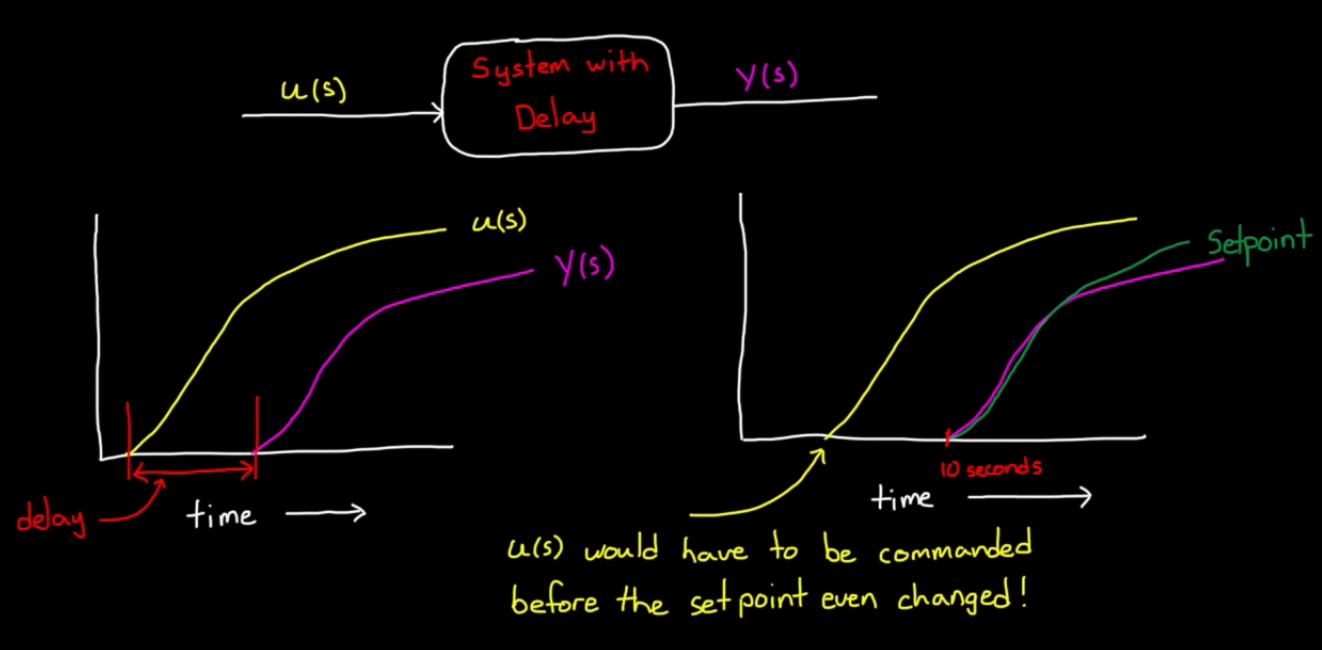 System with
Delay
u(s)
Y(s)
u(s)
Y(s)
delay
time
Setpoint
10 seconds
time
u(s) would have to be commanded
before the setpoint even changed!